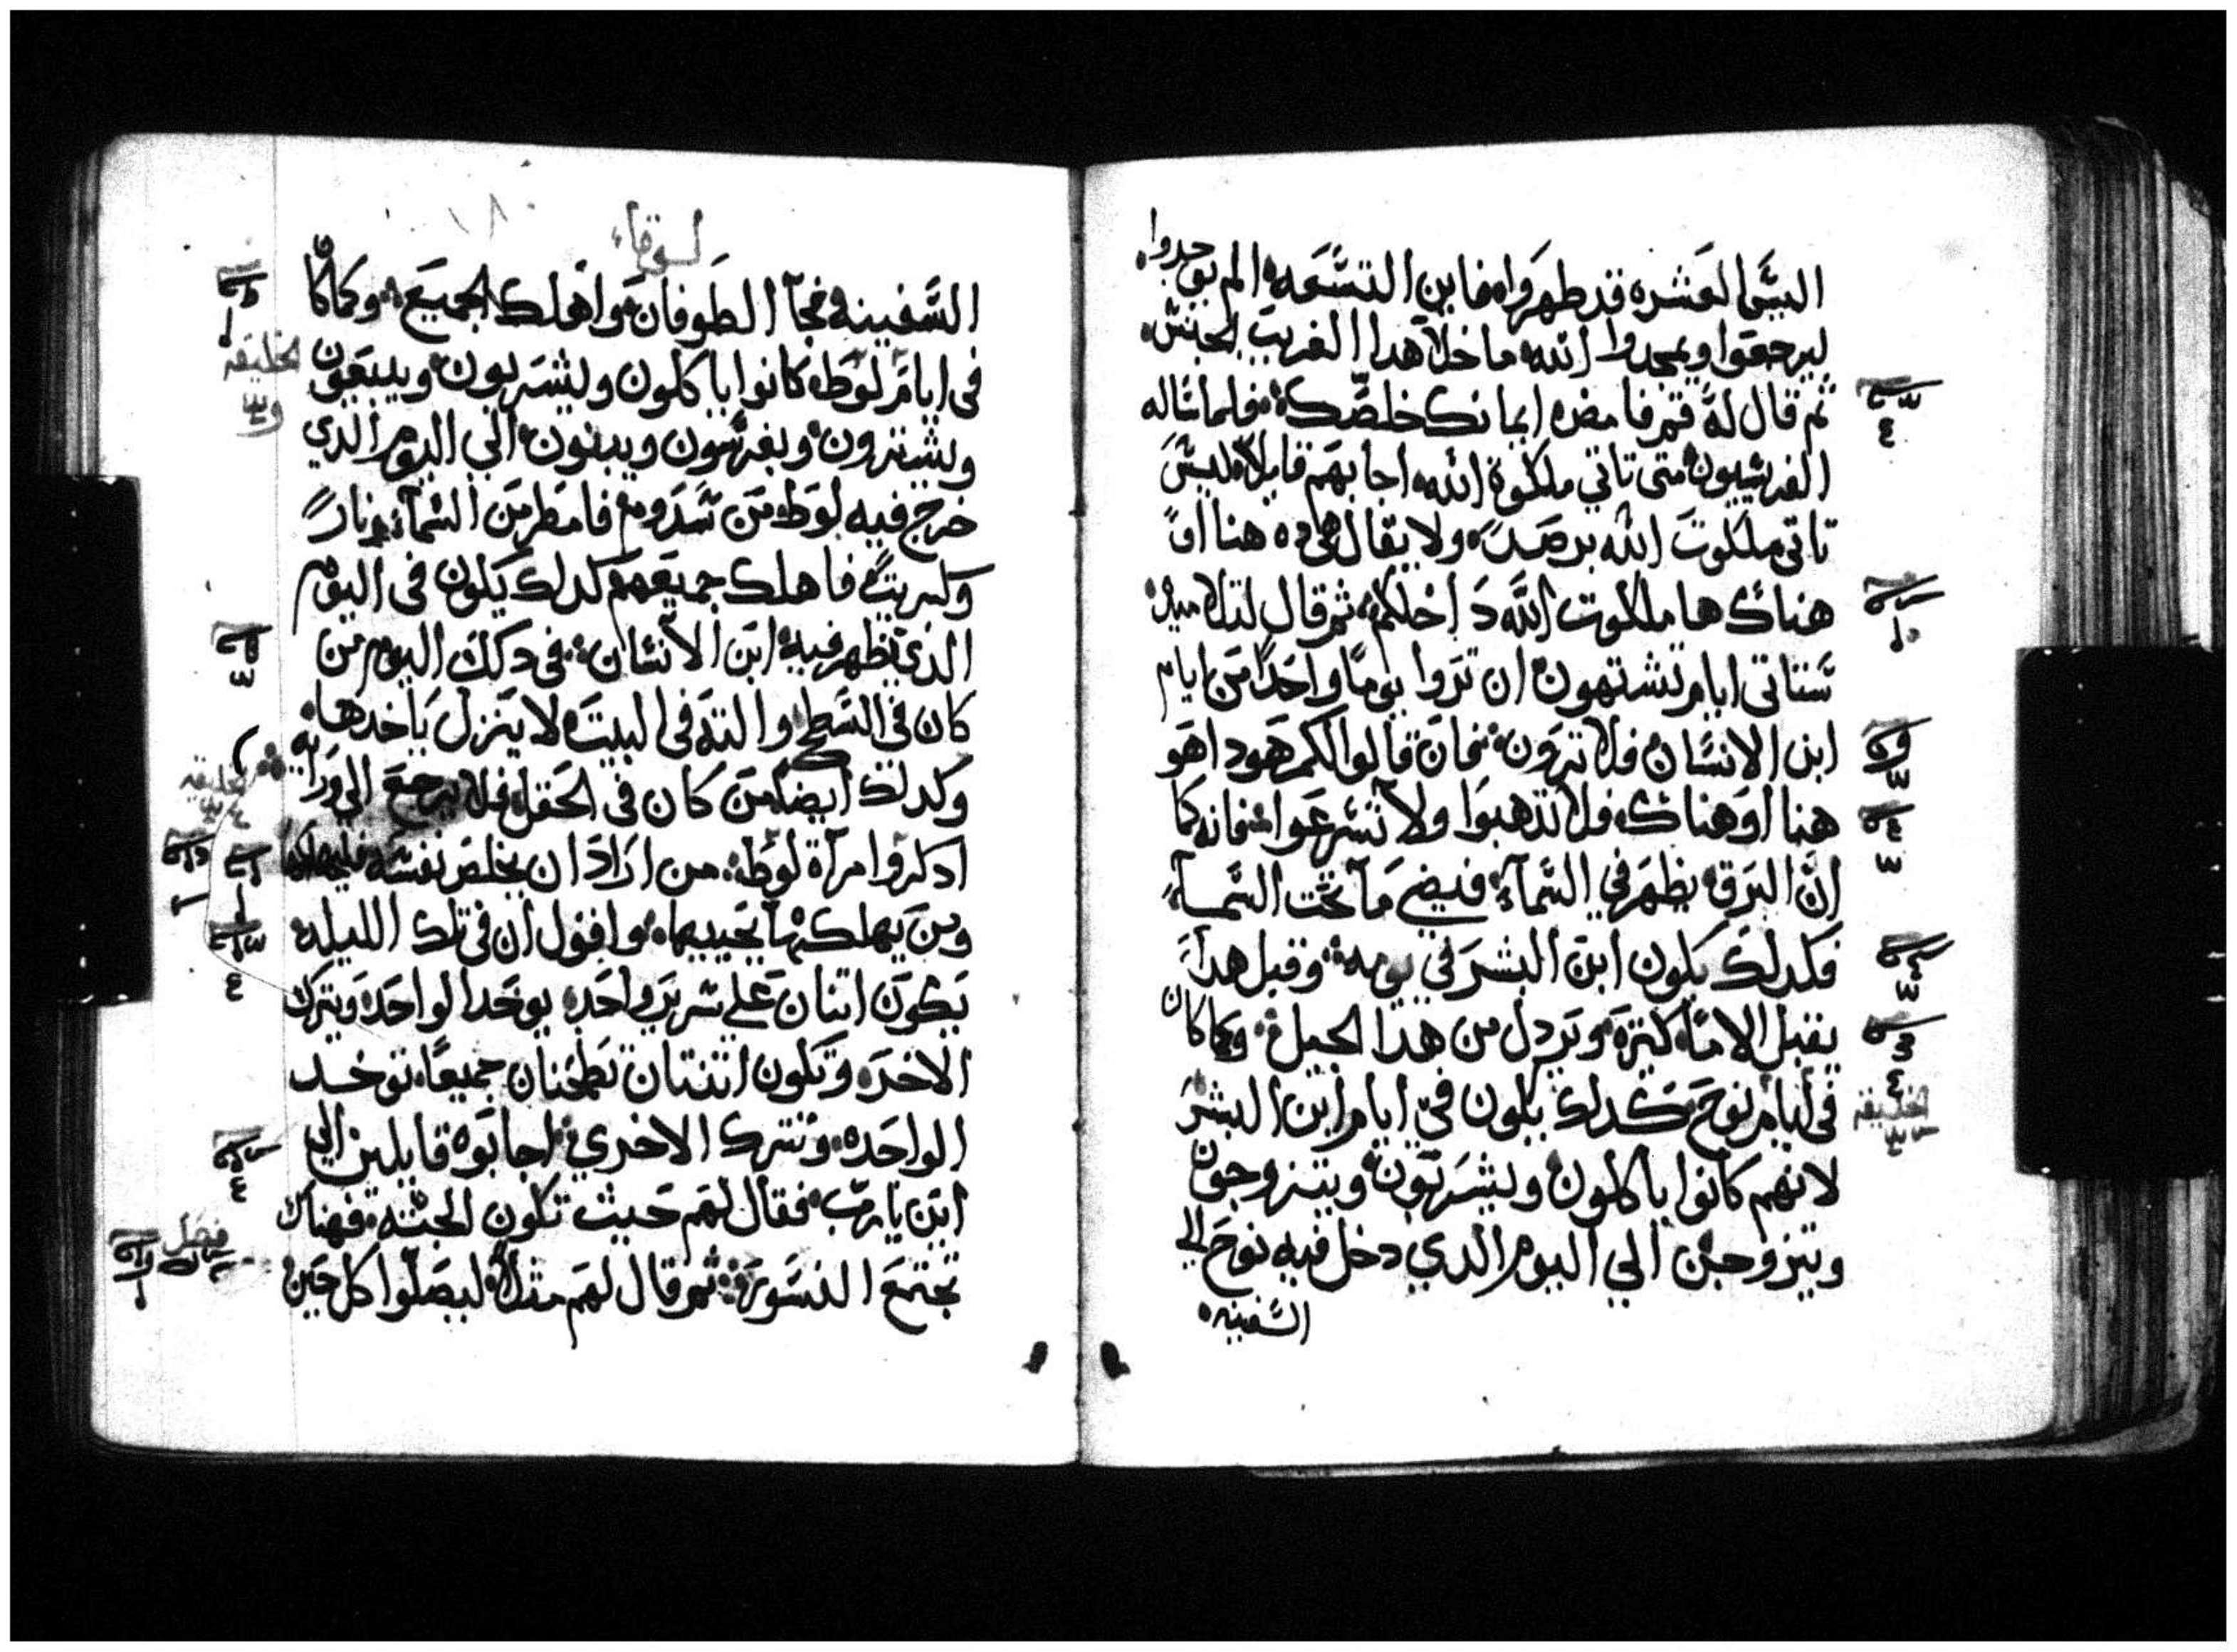 اليس العشره قد طهروا فاين التسعه الم يوجدوا
ليرجعوا ويمجدوا الله ما خلا هدا الغريب الجنس
ثم قال له قم فامض ايمانك خلصك فلما ساله
الفريسيون متى تاتي ملكوة الله اجابهم قايلا ليس
تاتي ملكوت الله برصد ولا يقال هوده هنا او
هناك ها ملكوت الله داخلكم ثم قال لتلاميده
ستاتي ايام تشتهون ان تروا يوما واحدا من ايام
ابن الانسان فلا ترون فان قالوا لكم هودا هو
هنا او هناك فلا تدهبوا ولا تسرعوا فانه كما
ان البرق يظهر في السماء فيضي ما تحت السماء
فكدلك يكون ابن البشر في يومه وقبل هدا
يقبل الاما كثيرة ويردل من هدا الجيل وكما كان
في ايام نوح كدلك يكون في ايام ابن البشر
لانهم كانوا ياكلون ويشربون ويتزوجون
ويتزوجن الي اليوم الدي دخل فيه نوح الي
السفينه
لوقا
السفينه فجآ الطوفان واهلك الجميع وكما كان
في ايام لوط كانوا ياكلون ويشربون ويبيعون
ويشترون ويغرسون ويبنون الي اليوم الدي
خرج فيه لوط من سدوم فامطر من السماء نارا
وكبريت فاهلك جميعهم كدلك يكون في اليوم
الدي يظهر فيه ابن الانسان في دلك اليوم من
كان في السطح والته في البيت لا ينزل ياخدها
وكدلك ايضا من كان في الحقل فلا يرجع الي ورايه
ادكروا امرآة لوط من اراد ان يخلص نفسه فليهلكها
ومن يهلكها يحييها واقول ان في تلك الليله
يكون اتنان علي سرير واحد يوخد الواحد ويترك
الاخر وتكون اتنتان تطحنان جميعا توخد
الواحده وتترك الاخري اجابوه قايلين الي
اين يا رب فقال لهم حيث تكون الجثه فهناك
تجتمع النسور ثم قال لهم مثلا ليصلوا كل حين